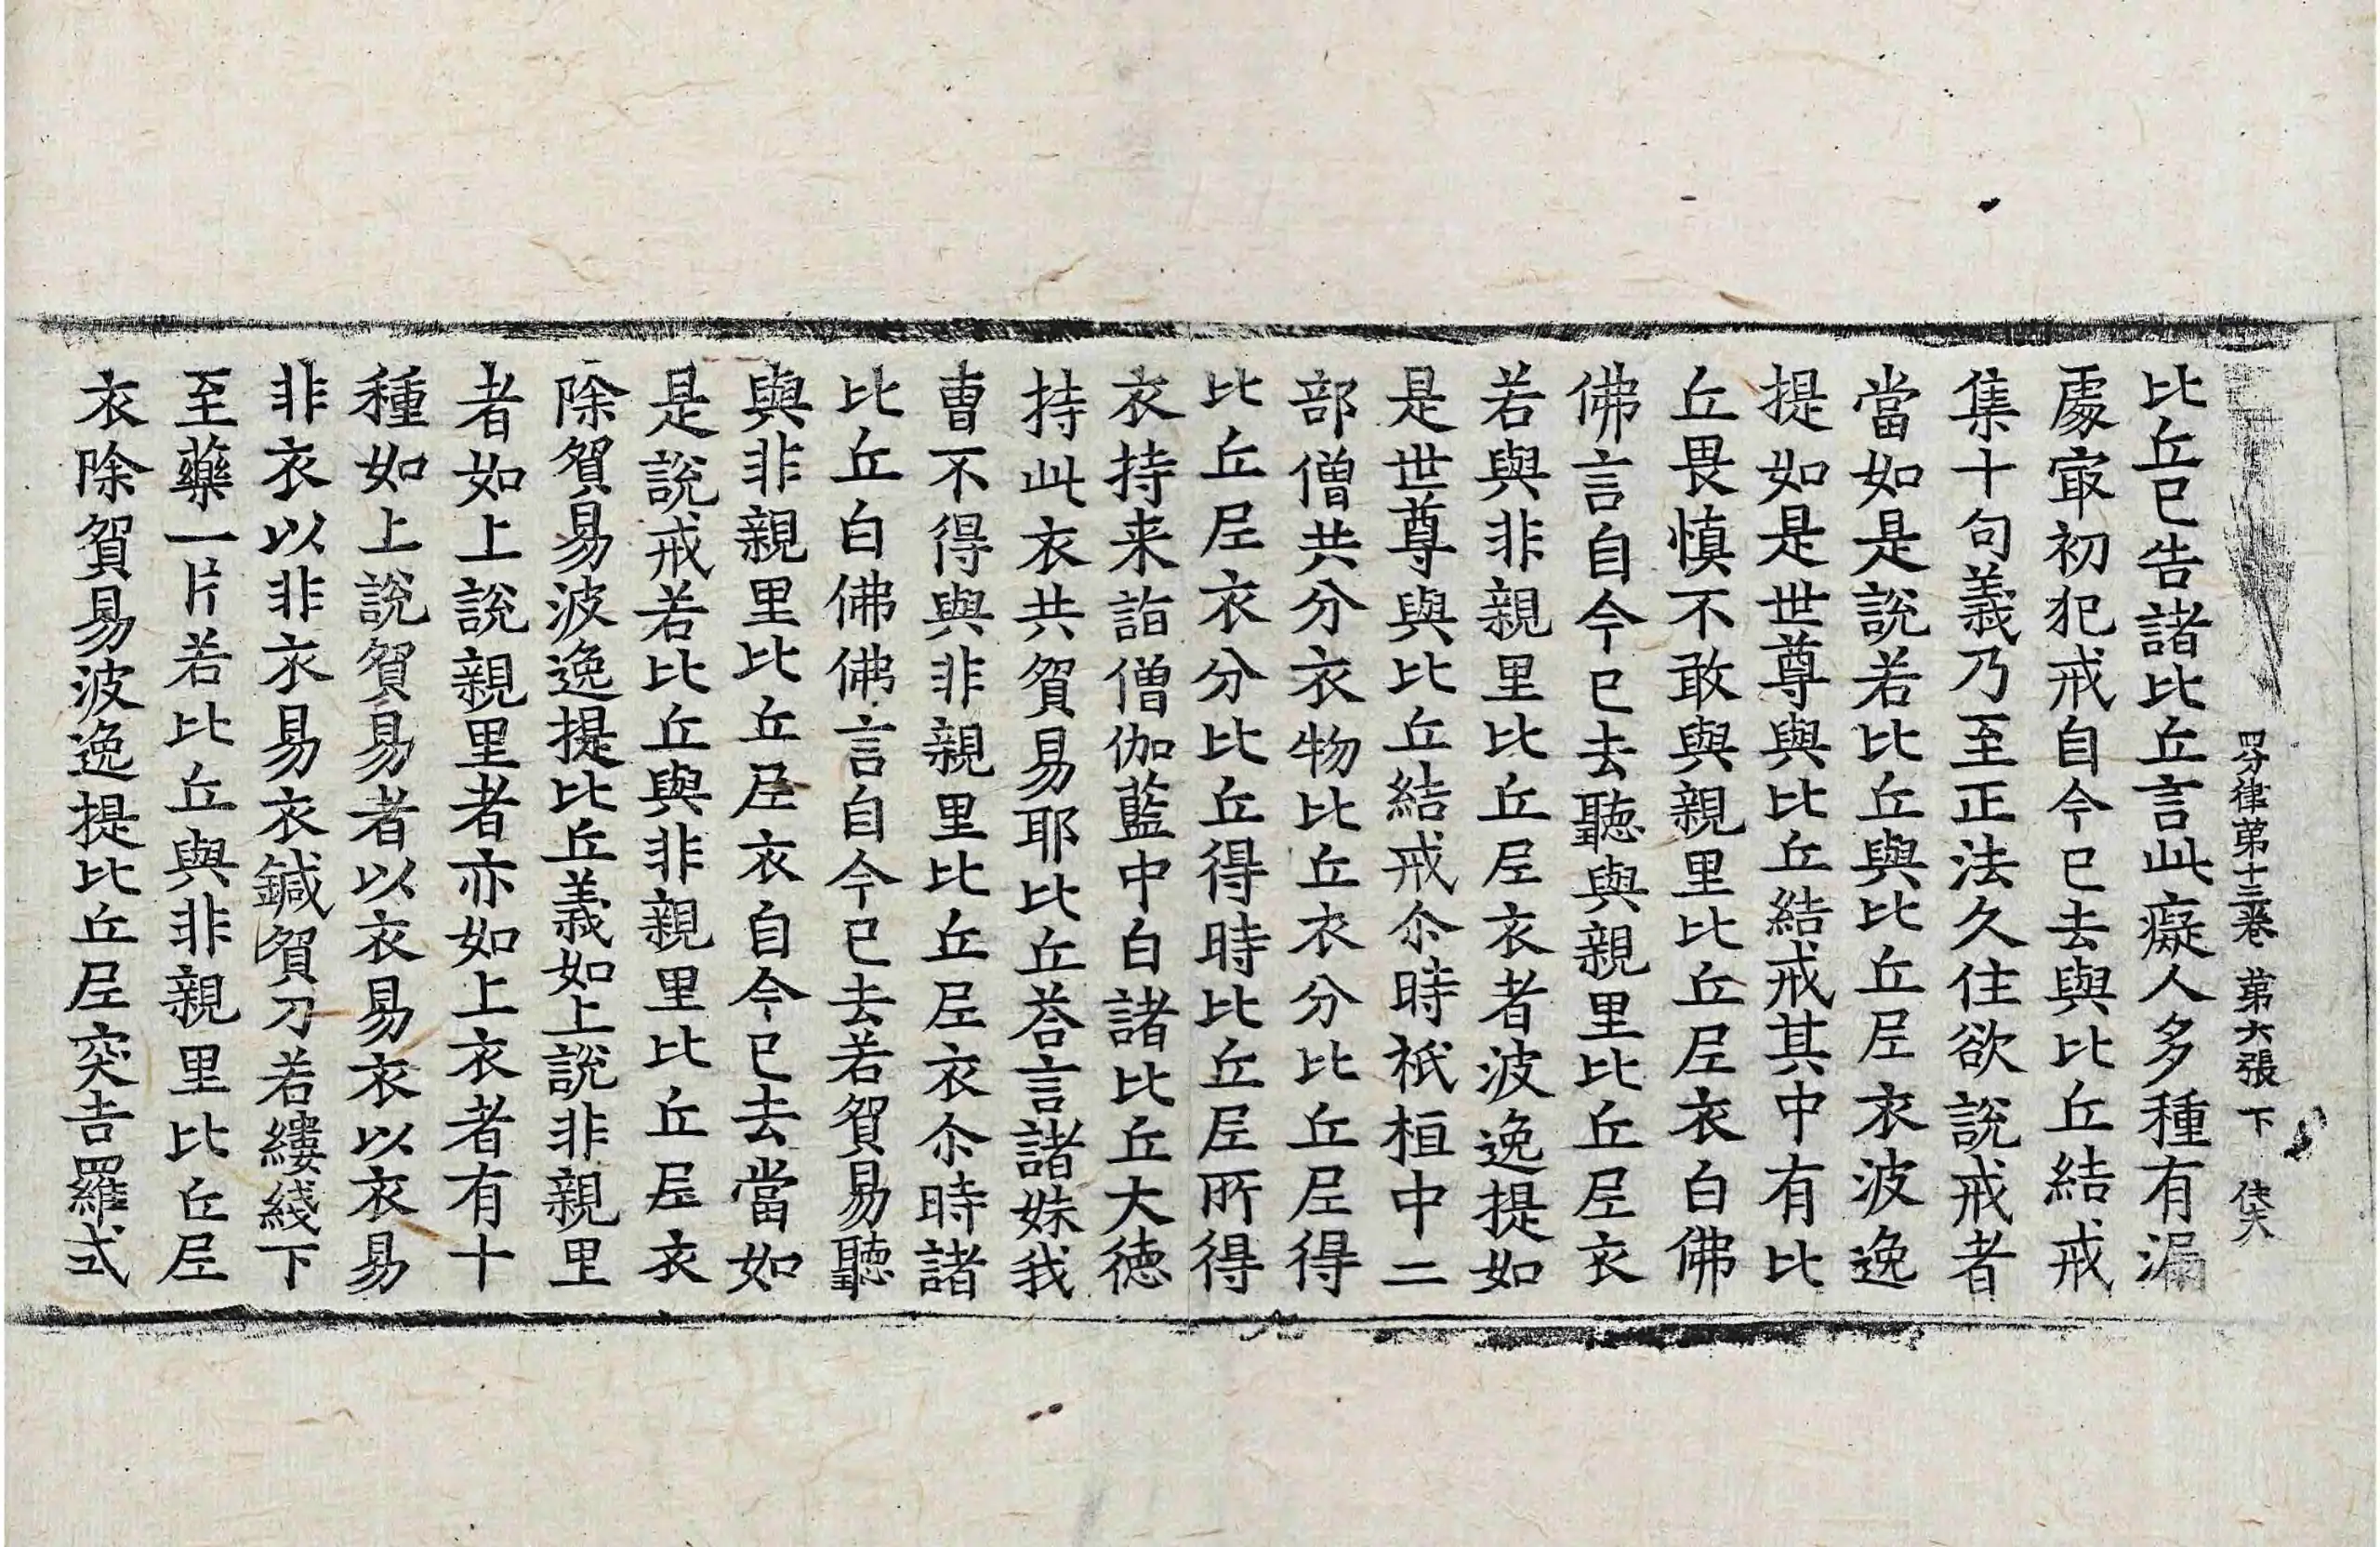 四分律第十三卷 第六張 下
比丘已告諸比丘言此癡人多種有漏
處㝡初犯戒自今已去與比丘結戒
集十句義乃至正法久住欲說戒者
當如是說若比丘與比丘尼衣波逸
提如是世尊與比丘結戒其中有比
丘畏慎不敢與親里比丘尼衣白佛
佛言自今已去聽與親里比丘尼衣
若與非親里比丘尼衣者波逸提如
是世尊與比丘結戒尒時祇桓中二
部僧共分衣物比丘衣分比丘尼得
比丘尼衣分比丘得時比丘尼所得
衣持来詣僧伽藍中白諸比丘大徳
持此衣共貿易耶比丘荅言諸妹我
曹不得與非親里比丘尼衣尒時諸
比丘白佛佛言自今已去若貿易聽
與非親里比丘尼衣自今已去當如
是說戒若比丘與非親里比丘尼衣
除貿易波逸提比丘義如上說非親里
者如上說親里者亦如上衣者有十
種如上說貿易者以衣易衣以衣易
非衣以非衣易衣鍼貿刀若縷綫下
至藥一片若比丘與非親里比丘尼
衣除貿易波逸提比丘尼突吉羅式